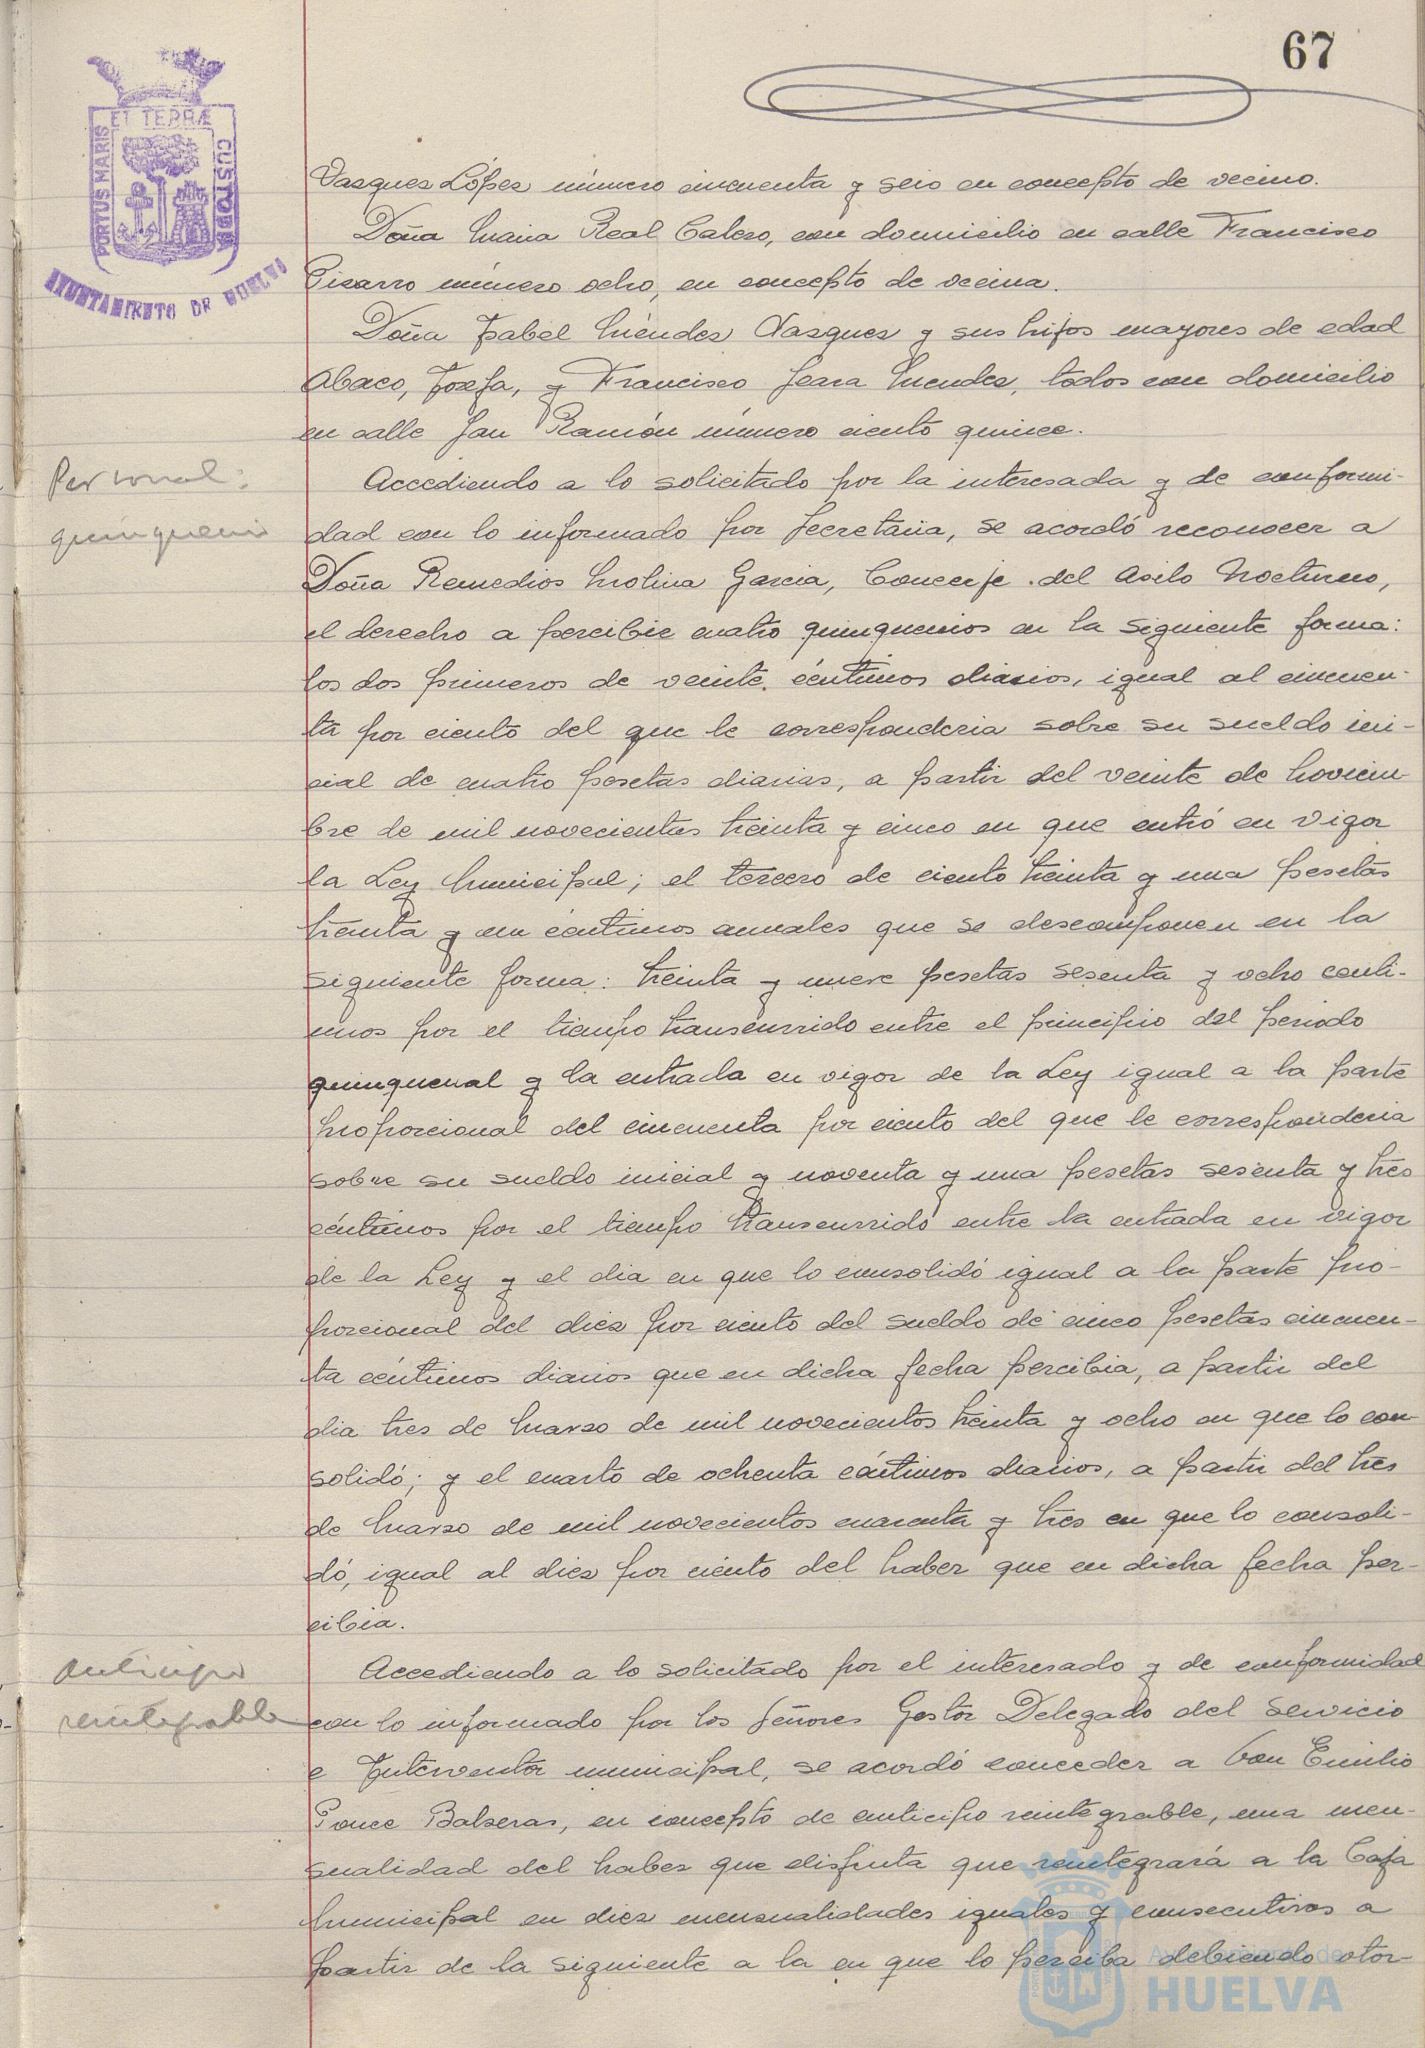 67
ET TERRÆ
PORTUS MARIS
CUSTODIA
AYUNTAMIENTO DE HUELVA
Vasques López número cincuenta y seis en concepto de vecino.
Doña Maria Real Calero, con domicilio en calle Francisco
Pizarro número ocho, en concepto de vecina.
Doña Isabel Méndez Vasques y sus hijos mayores de edad
Josefa, y Francisco Mendez, todos con domicilio
en calle San Ramón número ciento quince.
Personal:
quinquenio
Accediendo a lo solicitado por la interesada y de conformi-
dad con lo informado por Secretaria, se acordó reconocer a
Doña Remedios Molina Garcia, Conserje del Asilo Nocturno,
el derecho a percibir cuatro quinquenios en la siguiente forma:
los dos primeros de veinte céntimos diarios, igual al cincuen-
ta por ciento del que le corresponderia sobre su sueldo ini-
cial de cuatro pesetas diarias, a partir del veinte de Noviem-
bre de mil novecientos treinta y cinco en que entró en vigor
la Ley Municipal; el tercero de ciento treinta y una pesetas
treinta y un céntimos anuales que se descomponen en la
siguiente forma: treinta y nueve pesetas sesenta y ocho centi-
mos por el tiempo transcurrido entre el principio del periodo
quinquenal y la entrada en vigor de la Ley igual a la parte
proporcional del cincuenta por ciento del que le corresponderia
sobre su sueldo inicial y noventa y una pesetas sesenta y tres
céntimos por el tiempo transcurrido entre la entrada en vigor
de la Ley y el dia en que lo consolidó igual a la parte pro-
porcional del diez por ciento del sueldo de cinco pesetas cincuen-
ta céntimos diarios que en dicha fecha percibia, a partir del
dia tres de Marzo de mil novecientos treinta y ocho en que lo con-
solidó; y el cuarto de ochenta céntimos diarios, a partir del tres
de Marzo de mil novecientos cuarenta y tres en que lo consoli-
dó, igual al diez por ciento del haber que en dicha fecha per-
cibia.
Anticipo
reintegrable
Accediendo a lo solicitado por el interesado y de conformidad
con lo informado por los Señores Gestor Delegado del Servicio
e Interventor municipal, se acordó conceder a Don Emilio
Ponce Balseras, en concepto de anticipo reintegrable, una men-
sualidad del haber que disfruta que reintegrará a la Caja
Municipal en diez mensualidades iguales y consecutivas a
partir de la siguiente a la en que lo perciba debiendo otor-
Ayuntamiento de
HUELVA